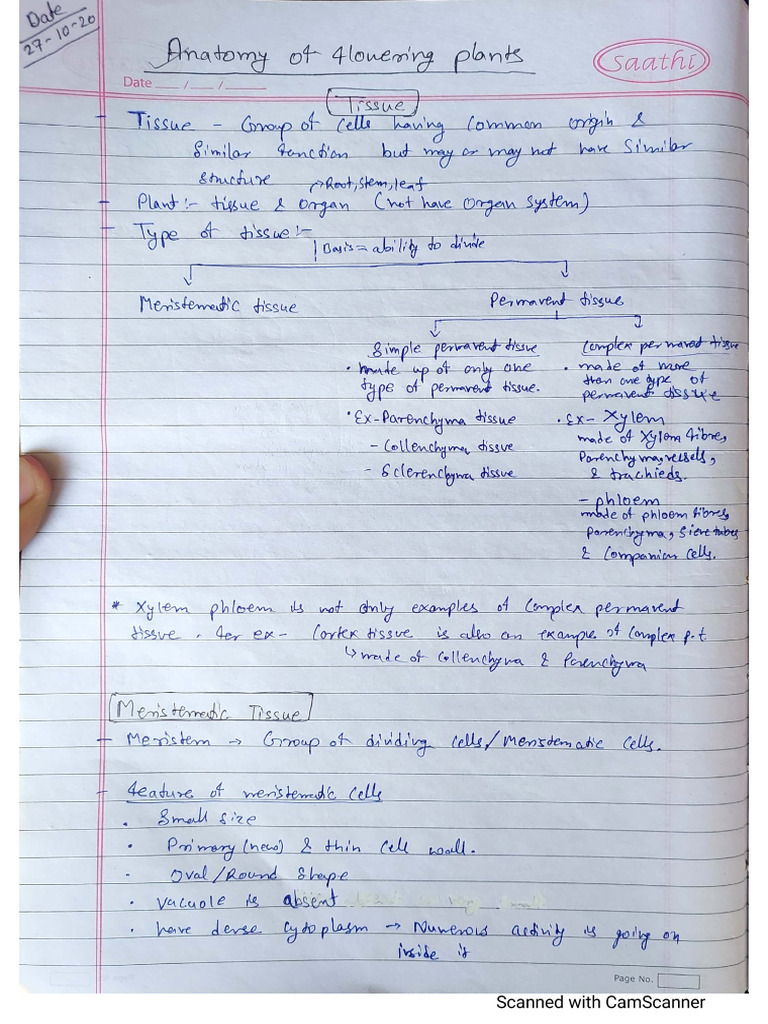 Date
27-10-20
Anatomy of flowering plants
saathi
Date ___/___/___
Tissue
- Tissue - Group of Cells having Common origin &
Similar function but may or may not have Similar
structure
→ Root, stem, leaf
- Plant :- tissue & organ (not have organ system)
- Type of tissue :-
Basis = ability to divide
Meristematic tissue
Permavent tissue
Simple permavent tissue
• made up of only one
type of permavent tissue.
• Ex- Parenchyma tissue
- Collenchyma tissue
- Sclerenchyma tissue
Complex permavent tissue
• made of more
than one type of
permavent tissue
• Ex- Xylem
made of xylem fibre,
Parenchyma, vessels,
& trachieds.
- phloem
made of phloem fibres,
parenchyma, Sieve tubes
& Companian cells.
* Xylem phloem is not only examples of Complex permavent
tissue. for ex- Cortex tissue is also an example of Complex p.t
↳ made of Collenchyma & Parenchyma
Meristematic Tissue
- Meristem → Group of dividing cells/Meristematic cells.
- feature of meristematic cells
• Small size
• Primary (new) & thin Cell wall.
• Oval/Round shape
• vacuole is absent
• have dense cytoplasm → Numerous activity is going on
inside it
Page No.
Scanned with CamScanner